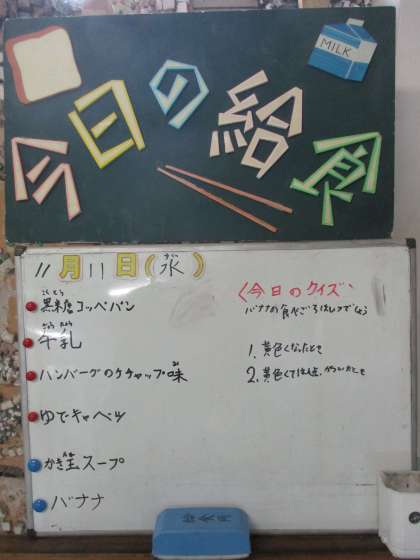 MILK
今日の給食
11月11日(水)
すい
こくとう
黒糖コッペパン
ぎゅうにゅう
牛乳
ハンバーグのケチャップ味
み
ゆでキャベツ
かき玉スープ
たま
バナナ
〈今日のクイズ〉
バナナの食べごろはいつでしょう
1. 黄色くなったとき
2. 黄色くて
給食用